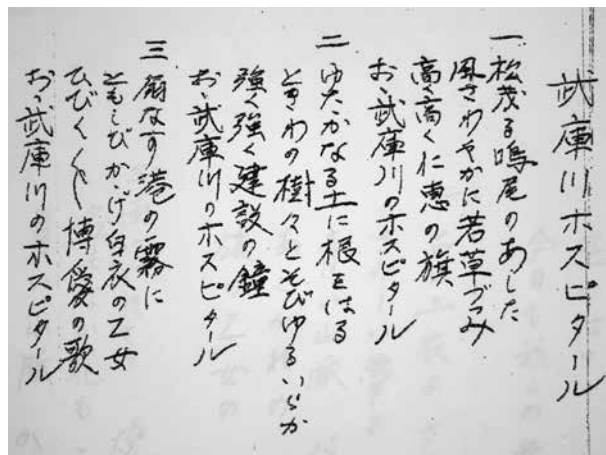 武庫川ホスピタール
一 松茂る鳴尾のあした
風さわやかに若草づみ
高く高く仁恵の旗
おゝ武庫川のホスピタール
二 ゆたかなる土に根をはる
ときわの樹々とそびゆるいらか
強く強く建設の鐘
おゝ武庫川のホスピタール
三 なす港の霧に
ともしびかゝげ白衣の乙女
ひびく〱博愛の歌
おゝ武庫川のホスピタール